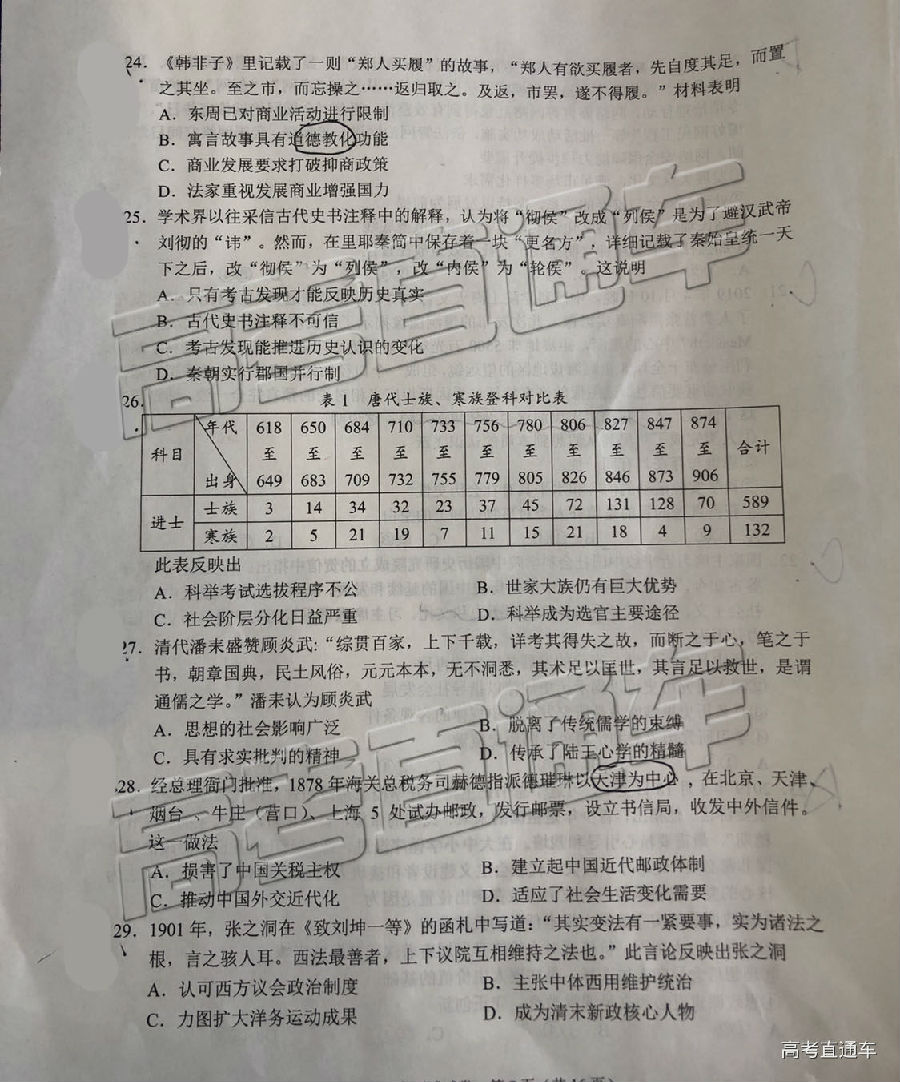 24. 《韩非子》里记载了一则“郑人买履”的故事，“郑人有欲买履者，先自度其足，而置
之其坐。至之市，而忘操之……返归取之。及返，市罢，遂不得履。”材料表明
A．东周已对商业活动进行限制
B．寓言故事具有道德教化功能
C．商业发展要求打破抑商政策
D．法家重视发展商业增强国力
25．学术界以往采信古代史书注释中的解释，认为将“彻侯”改成“列侯”是为了避汉武帝
刘彻的“讳”。然而，在里耶秦简中保存着一块“更名方”，详细记载了秦始皇统一天
下之后，改“彻侯”为“列侯”，改“内侯”为“轮侯”。这说明
A．只有考古发现才能反映历史真实
B．古代史书注释不可信
C．考古发现能推进历史认识的变化
D．秦朝实行郡国并行制
26. 表 1 唐代士族、寒族登科对比表
年代 618 650 684 710 733 756 780 806 827 847 874
科目 至 至 至 至 至 至 至 至 至 至 至 合计
出身 649 683 709 732 755 779 805 826 846 873 906
进士 士族 3 14 34 32 23 37 45 72 131 128 70 589
寒族 2 5 21 19 7 11 15 21 18 4 9 132
此表反映出
A．科举考试选拔程序不公 B．世家大族仍有巨大优势
C．社会阶层分化日益严重 D．科举成为选官主要途径
27．清代潘耒盛赞顾炎武：“综贯百家，上下千载，详考其得失之故，而断之于心，笔之于
书，朝章国典，民土风俗，元元本本，无不洞悉，其术足以匡世，其言足以救世，是谓
通儒之学。”潘耒认为顾炎武
A．思想的社会影响广泛 B．脱离了传统儒学的束缚
C．具有求实批判的精神 D．传承了陆王心学的精髓
28．经总理衙门批准，1878 年海关总税务司赫德指派德璀琳以天津为中心，在北京、天津、
烟台、牛庄（营口）、上海 5 处试办邮政，发行邮票，设立书信局，收发中外信件。
这一做法
A．损害了中国关税主权 B．建立起中国近代邮政体制
C．推动中国外交近代化 D．适应了社会生活变化需要
29．1901 年，张之洞在《致刘坤一等》的函札中写道：“其实变法有一紧要事，实为诸法之
根，言之骇人耳。西法最善者，上下议院互相维持之法也。”此言论反映出张之洞
A．认可西方议会政治制度 B．主张中体西用维护统治
C．力图扩大洋务运动成果 D．成为清末新政核心人物
高考直通车
高考直通车
高考直通车